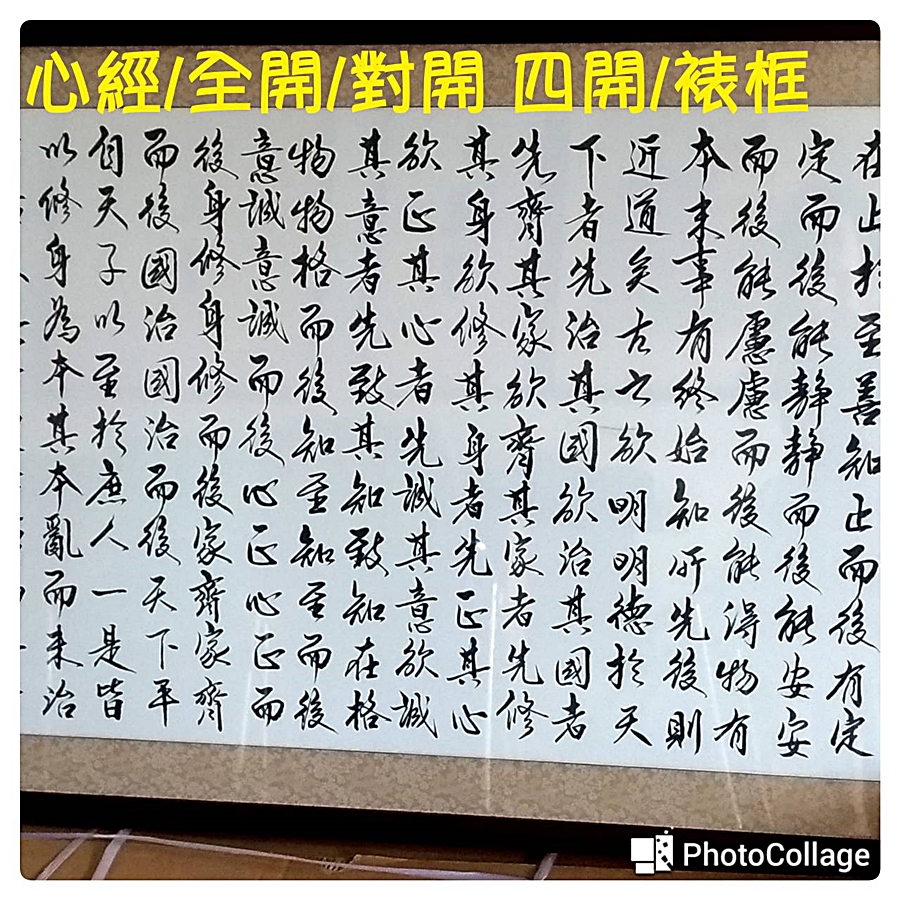 心經/全開/對開 四開/裱框
在止於至善知止而後有定
定而後能静静而後能安安
而後能慮慮而後能得物有
本末事有終始知所先後則
近道矣古之欲明明德於天
下者先治其國欲治其國者
先齊其家欲齊其家者先修
其身欲修其身者先正其心
欲正其心者先誠其意欲誠
其意者先致其知致知在格
物物格而後知至知至而後
意誠意誠而後心正心正而
後身修身修而後家齊家齊
而後國治國治而後天下平
自天子以至於庶人一是皆
以修身為本其本亂而末治
PhotoCollage